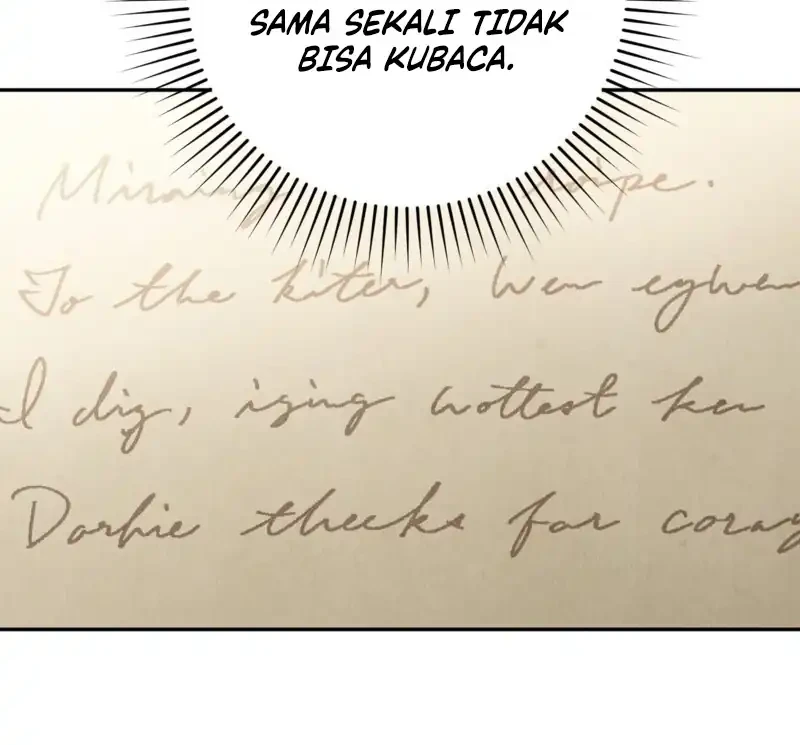 SAMA SEKALI TIDAK
BISA KUBACA.
To the kiter, wen egwen
dig, iging wottest ken
Dorhie theeks for coray